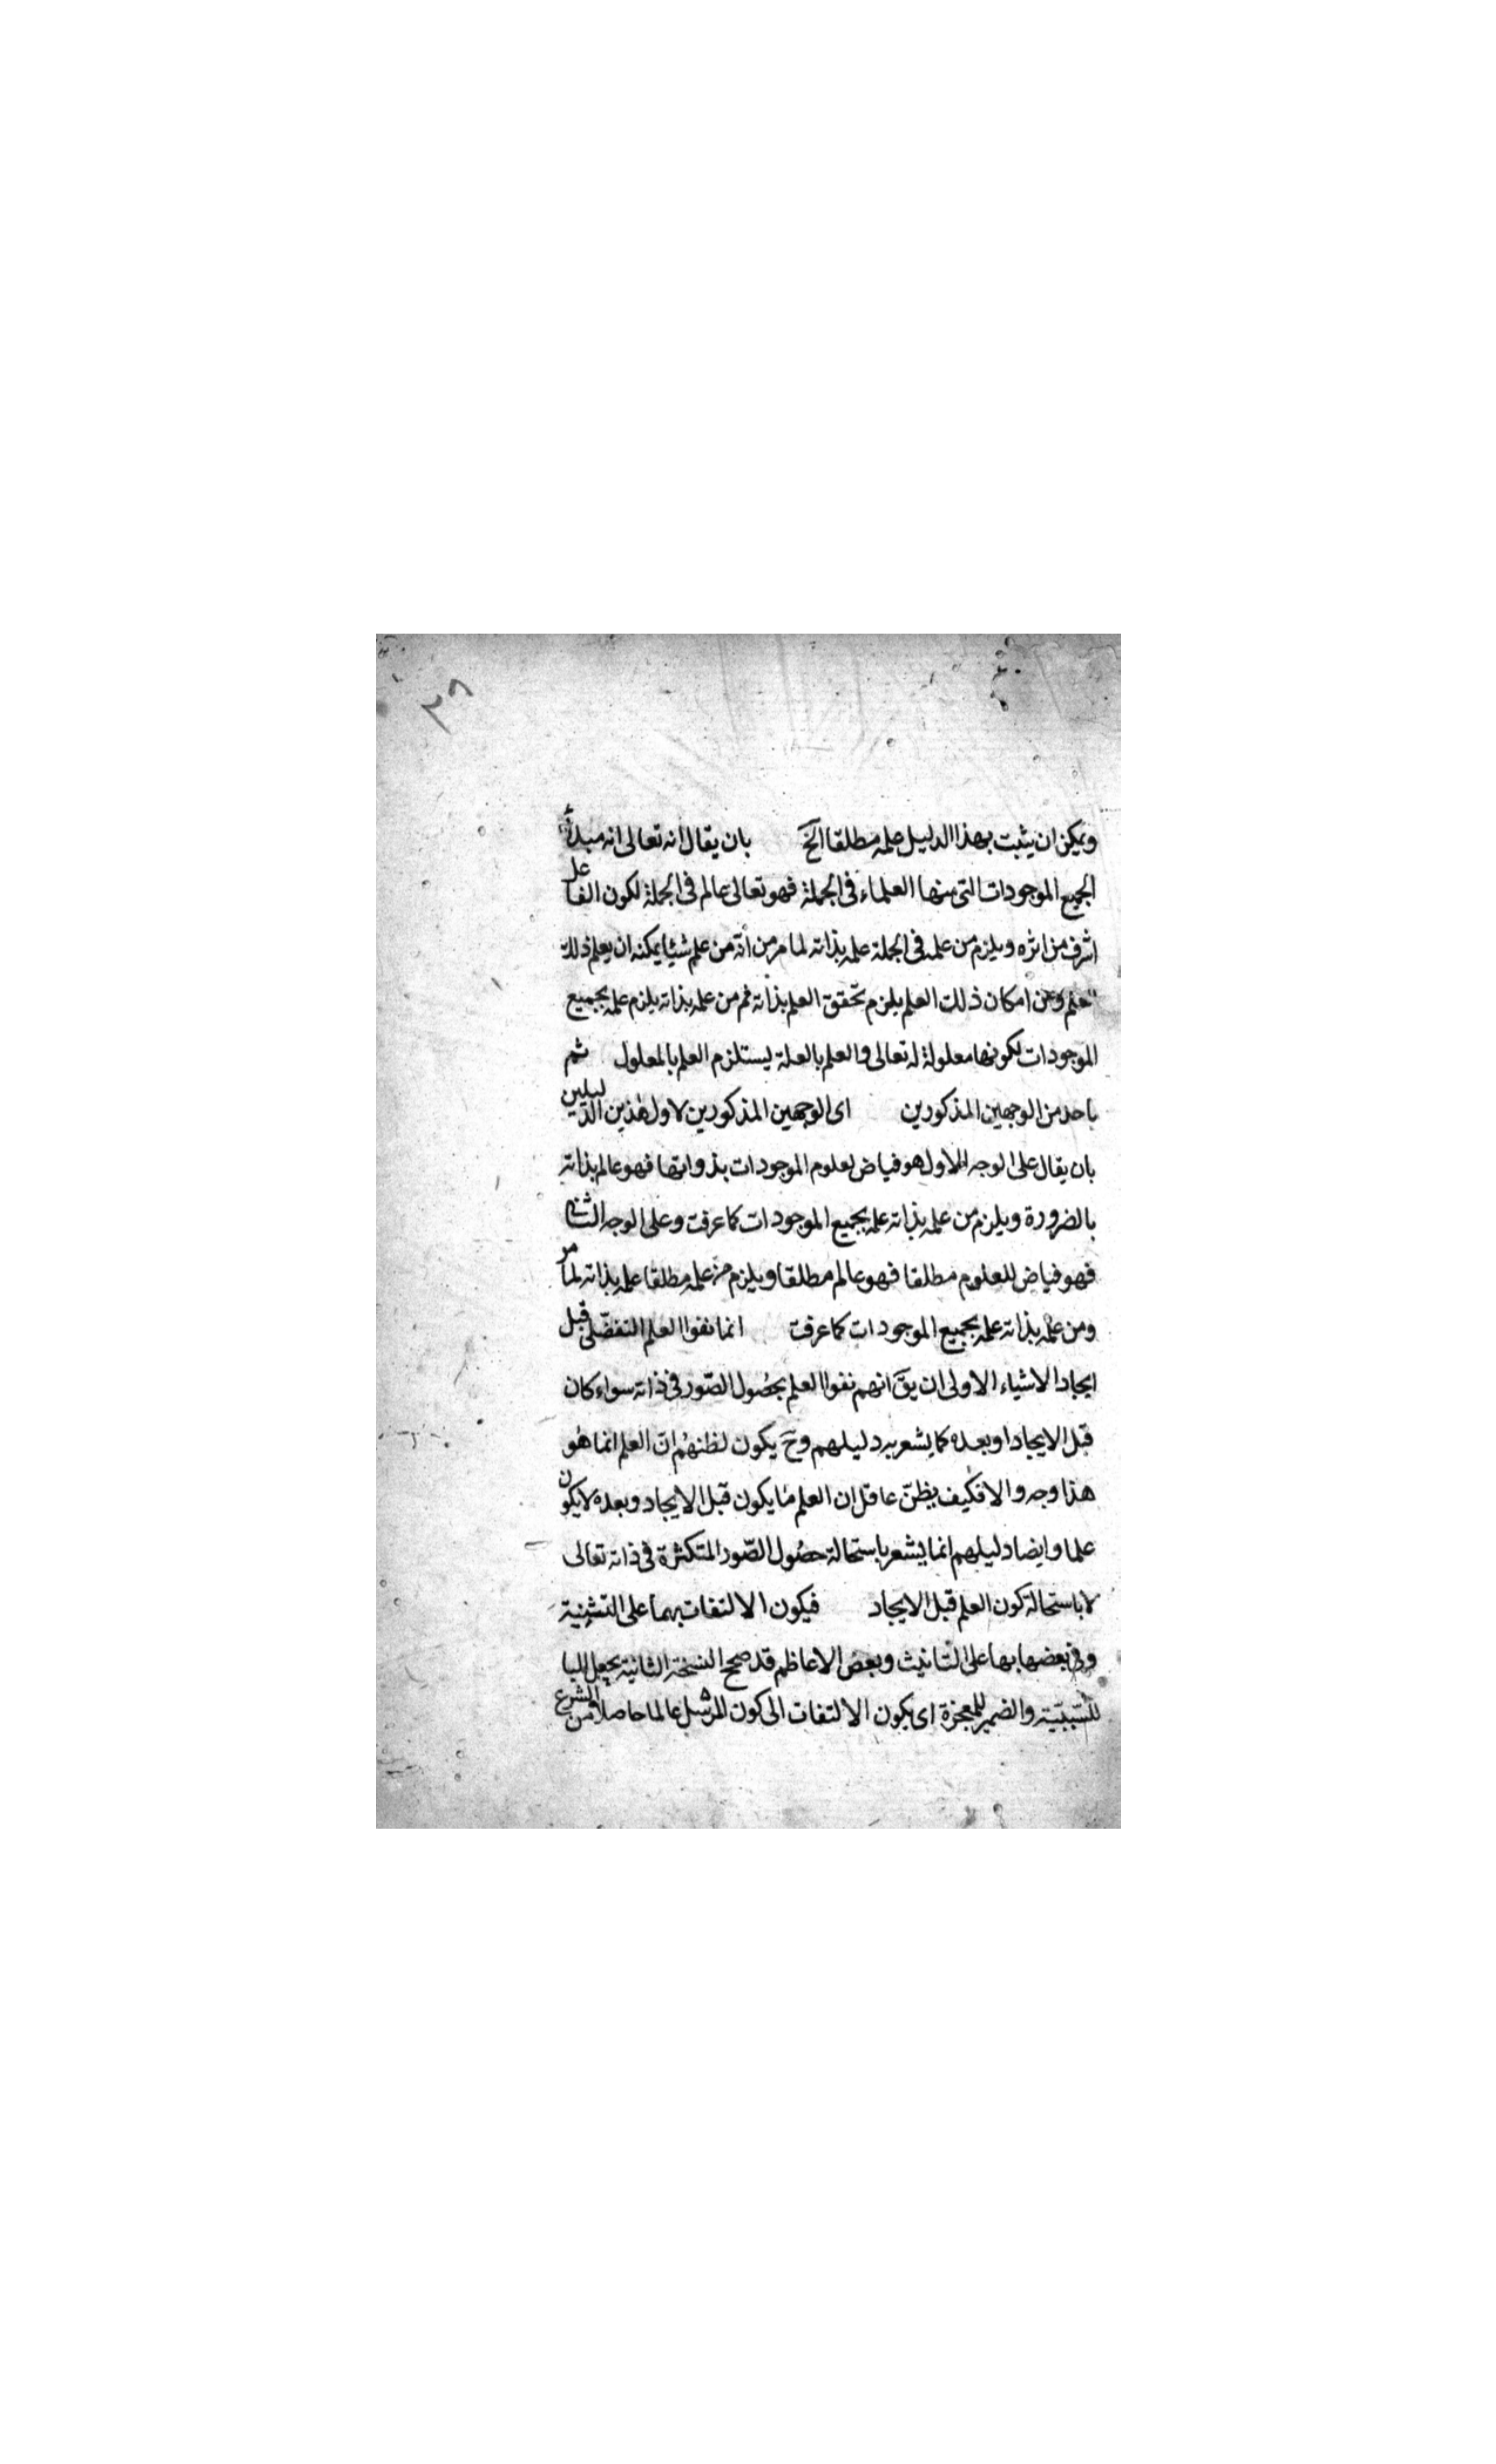 ٢٩
ويمكن ان يثبت بهذا الدليل علمه مطلقا الخ بان يقال انه تعالى انه مبدأ
الجميع الموجودات التى منها العلماء فى الجملة فهو تعالى عالم فى الجملة لكون الفاعل
اشرف من اثره ويلزم من علمه فى الجملة علمه بذاته لما مر من انّه من علم شيئا يمكنه ان يعلم ذلك
علم وعن امكان ذلك العلم يلزم تحقق العلم بذاته ثم من علمه بذاته يلزم علمه بجميع
الموجودات لكونها معلولة له تعالى والعلم بالعلة يستلزم العلم بالمعلول ثم
باحد من الوجهين المذكورين اى الوجهين المذكورين لاول هذين الدليلين
بان يقال على الوجه الاول هو فياض لعلوم الموجودات بذواتها فهو عالم بذاته
بالضرورة ويلزم من علمه بذاته علمه بجميع الموجودات كما عرفت وعلى الوجه الثانى
فهو فياض للعلوم مطلقا فهو عالم مطلقا ويلزم من علمه مطلقا علمه بذاته لما مر
ومن علمه بذاته علمه بجميع الموجودات كما عرفت انما نفوا العلم التفضّلى قبل
ايجاد الاشياء الاولى ان يقَ انهم نفوا العلم بحُصول الصّور فى ذاته سواء كان
قبل الايجاد او بعده كما يشعر به دليلهم وحَ يكون لظنهُم انّ العلم انما هُو
هذا وجه والا فكيف يظنّ عاقل ان العلم مٰا يكون قبل الايجاد وبعده لا يكون
علما وايضا دليلهم انما يشعر باستحالة حصُول الصّور المتكثرة فى ذاته تعالى
لا باستحالة كون العلم قبل الايجاد فيكون الالتفات بهما على التثنية
وفى بعضها بها على التانيث وبعض الاعاظم قد صحح النسخة الثانية بجعل البا
للسّببيّة والضمير للمعجزة اى يكون الالتفات الى كون المرسل عالما حاصلا من الشرع